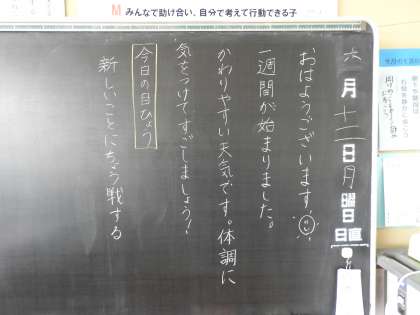 M みんなで助け合い、自分で考えて行動できる子
六月十二日月曜日
日直
おはようございます
一週間が始まりました。
かわりやすい天気です。体調に
気をつけてすごしましょう!
今日の目ひょう
新しいことにちょう戦する